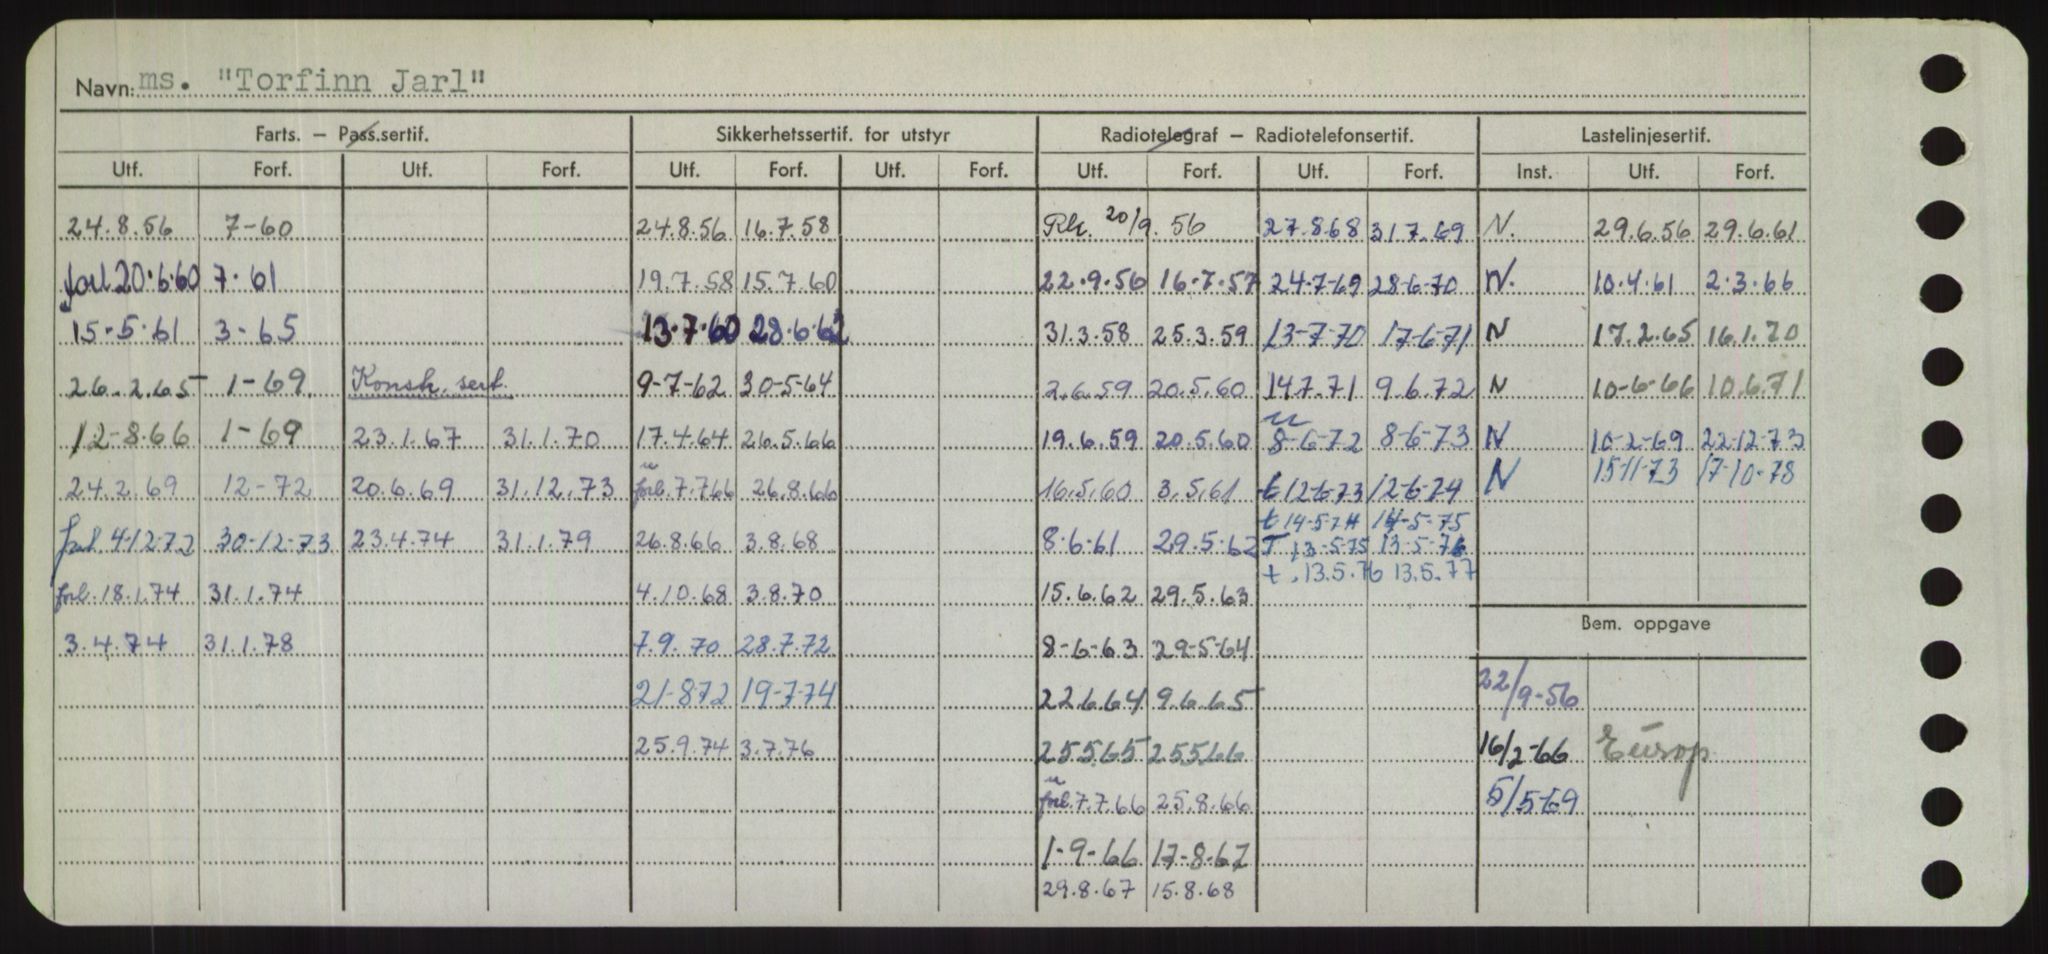 Navn: ms. "Torfinn Jarl"
Farts. – Pass.sertif. Sikkerhetssertif. for utstyr Radiotelegraf – Radiotelefonsertif. Lastelinjesertif.
Utf. Forf. Utf. Forf. Utf. Forf. Utf. Forf. Utf. Forf. Utf. Forf. Inst. Utf. Forf.
24.8.56 7-60 24.8.56 16.7.58 20/9.56 27.8.68 31.7.69 N. 29.6.56 29.6.61
forl 20.6.60 7.61 19.7.58 15.7.60 22.9.56 16-7-57 24-7-69 28-6-70 N. 10.4.61 2.3.66
15.5.61 3-65 13.7.60 28.6.62 31.3.58 25.3.59 13-7-70 17-6-71 N 17.2.65 16.1.70
26.2.65 1-69. Konstr. sert. 9-7-62 30-5-64 2.6.59 20.5.60 14.7.71 9.6.72 N 10-6-66 10.6.71
12-8.66 1-69 23.1.67 31.1.70 17.4.64 26.5.66 19.6.59 20.5.60 8-6-72 8-6-73 N 10-2-69 22-12-73
24.2.69 12-72 20.6.69 31.12.73 forl. 7.7.66 26.8.66 16.5.60 3.5.61 t 12-6-73 12-6-74 N 15-11-73 17-10-78
t 14-5-74 14-5-75
forl. 4-12-72 30-12-73 23.4.74 31.1.79 26.8.66 3.8.68 8.6.61 29.5.62 T 13-5-75 13-5-76
t. 13.5.76 13.5.77
forl. 18.1.74 31.1.74 4.10.68 3.8.70 15.6.62 29.5.63
Bem. oppgave
3.4.74 31.1.78 7.9.70 28.7.72 8-6-63 29-5-64
21-8-72 19-7-74 22.6.64 9.6.65 22/9-56
25.9.74 3.7.76 25.5.65 25.5.66 16/2-66 Europ.
forl. 7.7.66 25.8.66 5/5-69
1-9-66 17-8-67
29.8.67 15.8.68